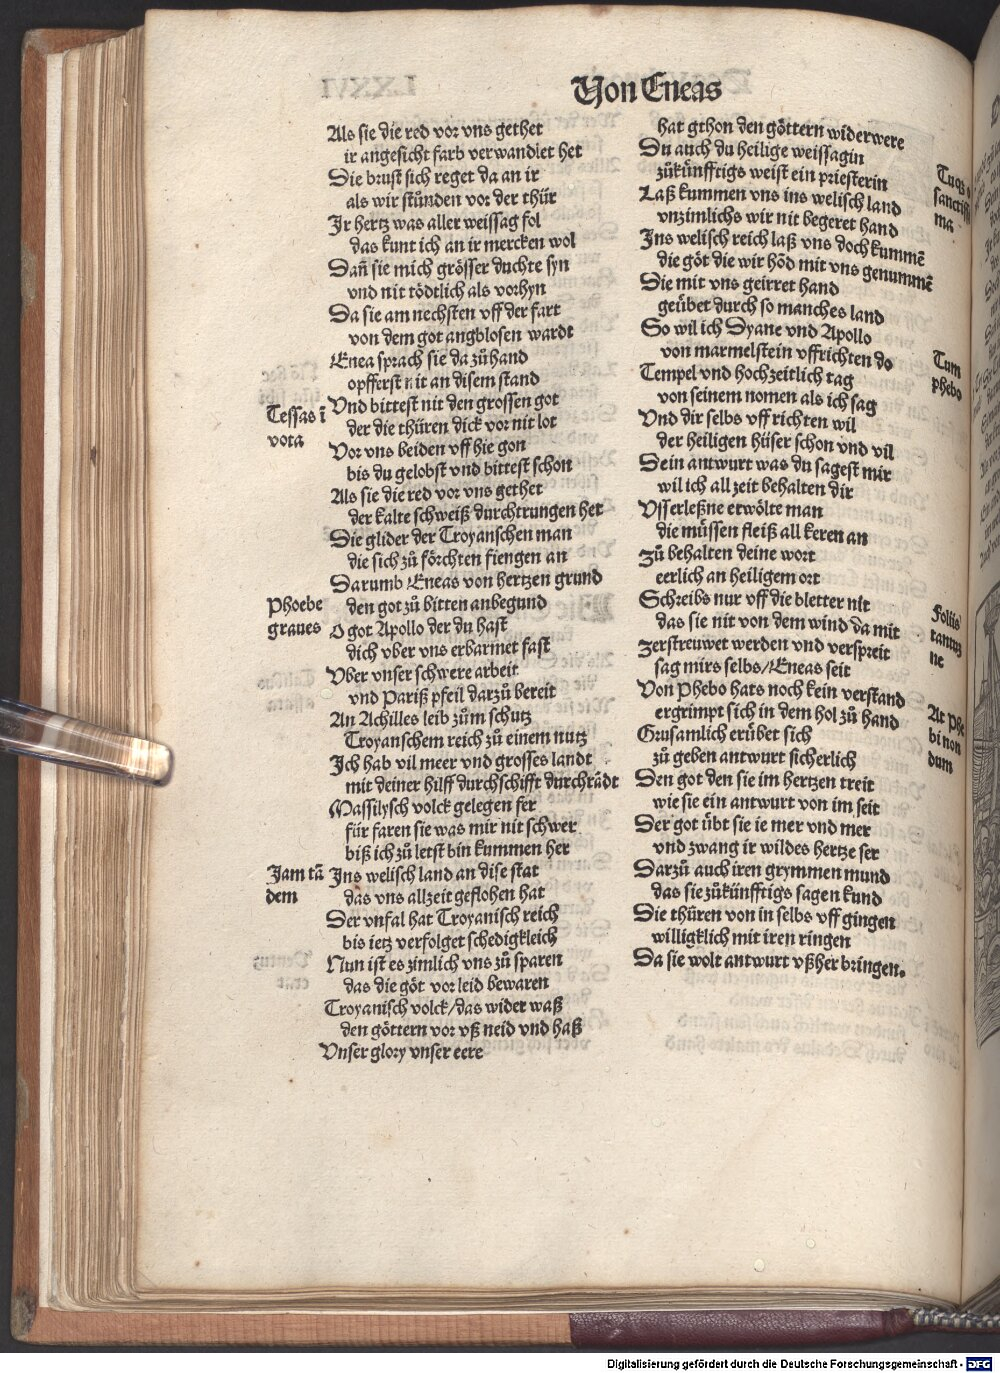 Von Eneas
Als sie die red vor vns gethet
ir angesicht farb verwandlet het
Die brust sich reget da an ir
als wir stůnden vor der thür
Ir hertz was aller weissag fol
das kunt ich an ir mercken wol
Dañ sie mich grösser duchte syn
vnd nit tödtlich als vorhyn
Da sie am nechsten vff der fart
von dem got angblosen wardt
Enea sprach sie da zů hand
opfferst nit an disem stand
Tessas ĩ
vota
Vnd bittest nit den grossen got
der die thüren dick vor nit lot
Vor vns beiden vff hie gon
bis du gelobst vnd bittest schon
Als sie die red vor vns gethet
der kalte schweiß durchtrungen het
Die glider der Troyanschen man
die sich zů förchten fiengen an
Darumb Eneas von hertzen grund
Phoebe
graues
den got zů bitten anbegund
O got Apollo der du hast
dich vber vns erbarmet fast
Vber vnser schwere arbeit
vnd Pariß pfeil darzů bereit
An Achilles leib zům schutz
Troyanschem reich zů einem nutz
Ich hab vil meer vnd grosses landt
mit deiner hilff durchschifft durchrãdt
Massilysch volck gelegen fer
für faren sie was mir nit schwer
biß ich zů letst bin kummen her
Jam tã
dem
Ins welisch land an dise stat
das vns allzeit geflohen hat
Der vnfal hat Troyanisch reich
bis ietz verfolget schedigkleich
Nun ist es zimlich vns zů sparen
das die göt vor leid bewaren
Troyanisch volck/das wider waß
den göttern vor vß neid vnd haß
Vnser glory vnser eere
hat gthon den göttern widerwere
Du auch du heilige weissagin
zůkünfftigs weist ein priesterin
Tuqʒ o
sanctiss
ma
Laß kummen vns ins welisch land
vnzimlichs wir nit begeret hand
Ins welisch reich laß vns doch kummẽ
die göt die wir hôd mit vns genummẽ
Die mit vns geirret hand
geübet durch so manches land
So wil ich Dyane vnd Apollo
von marmelstein vffrichten do
Tum
phebo
Tempel vnd hochzeitlich tag
von seinem nomen als ich sag
Vnd dir selbs vff richten wil
der heiligen hüser schon vnd vil
Dein antwurt was du sagest mir
wil ich all zeit behalten dir
Vsserleßne erwölte man
die müssen fleiß all keren an
zů behalten deine wort
eerlich an heiligem ort
Schreibs nur vff die bletter nit
das sie nit von dem wind da mit
Foliis
tantuʒ
ne
zerstreuwet werden vnd verspreit
sag mirs selbs/Eneas seit
Von Phebo hats noch kein verstand
ergrimpt sich in dem hol zů hand
At Phe
bi non
dum
Grusamlich erübet sich
zů geben antwurt sicherlich
Den got den sie im hertzen treit
wie sie ein antwurt von im seit
Der got übt sie ie mer vnd mer
vnd zwang ir wildes hertze ser
Darzů auch iren grymmen mund
das sie zůkünfftigs sagen kund
Die thüren von in selbs vff gingen
willigklich mit iren ringen
Da sie wolt antwurt vßher bringen.
Digitalisierung gefördert durch die Deutsche Forschungsgemeinschaft - DFG